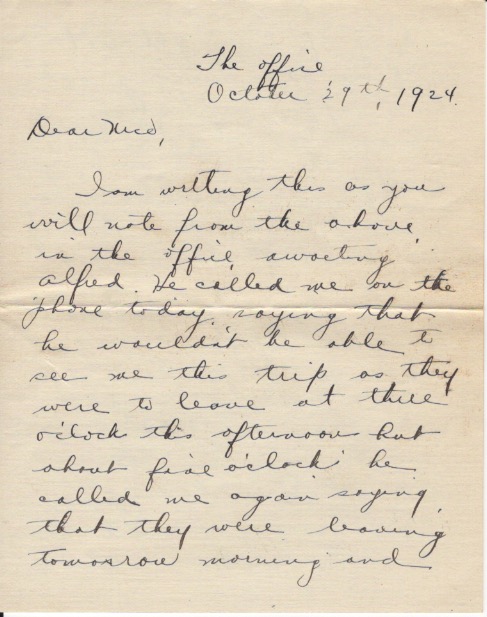 The office
October 29th, 1924.
Dear
I am writing this as you
will note from the above,
in the office awaiting
Alfred. He called me on the
phone today saying that
he wouldn't be able to
see me this trip as they
were to leave at three
o'clock this afternoon but
about five o'clock he
called me again saying
that they were leaving
tomorrow morning and